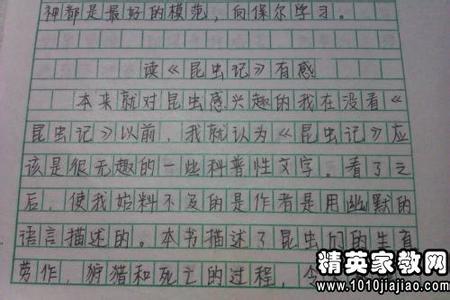 神都是最好的模范，向保尔学习。
读《昆虫记》有感
本来就对昆虫感兴趣的我在没看《
昆虫记》以前，我就认为《昆虫记》应
该是很无趣的一些科普性文字。看了之
后，使我始料不及的是作者是用幽默的
语言描述的。本书描述了昆虫们的生育
劳作，狩猎和死亡的过程，
精英家教网
www.1010jiajiao.com